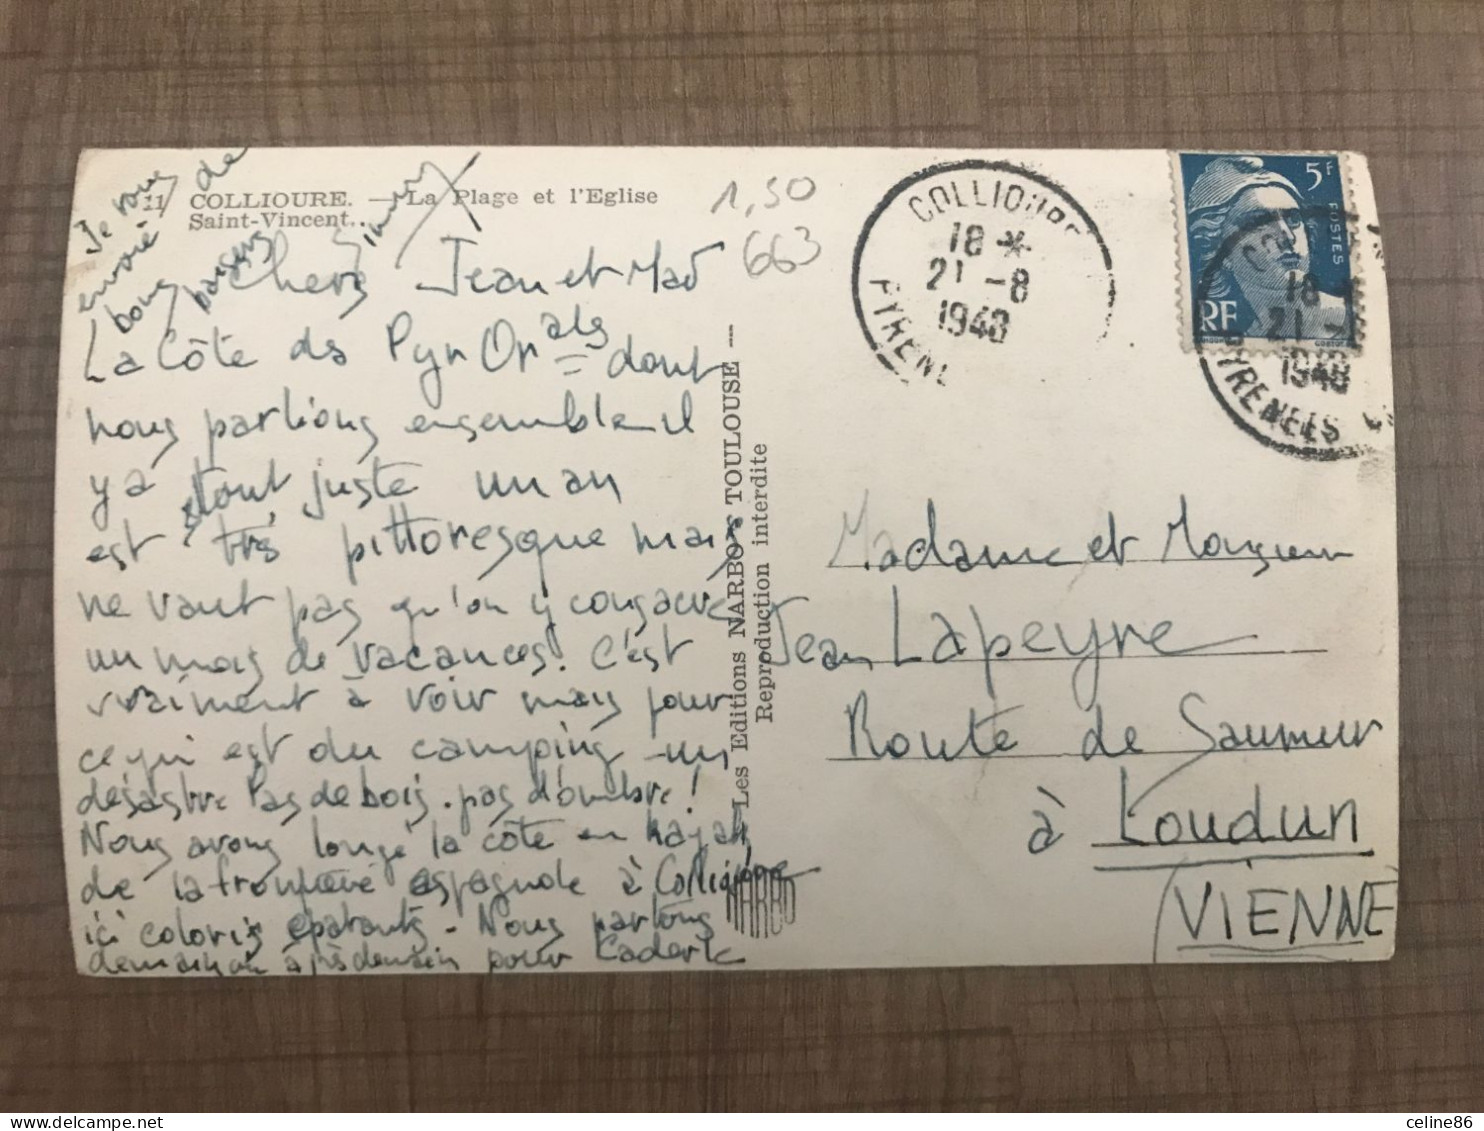 11 COLLIOURE. — La Plage et l'Eglise
Saint-Vincent.
Je vous
envoie de
bons baisers
Chers Jean et Mad
La Côte des Pyr Or ales dont
nous parlions ensemble il
y a tout juste un an
est très pittoresque mais
ne vaut pas qu'on y consacre
un mois de vacances. C'est
vraiment à voir mais pour
ce qui est du camping - un
désastre Pas de bois. pas d'ombre!
Nous avons longé la côte en kayak
de la frontière espagnole à Collioure
ici coloris épatants - Nous partons
demain ou après demain pour
1,50
663
Les Editions NARBO - TOULOUSE —
Reproduction interdite
NARBO
COLLIOURE
18 *
21 - 8
1948
PYRENE
5F
POSTES
RF
18 *
21 -
1948
PYRENEES
Madame et Monsieur
Jean Lapeyre
Route de Saumur
à Loudun
(VIENNE
celine86